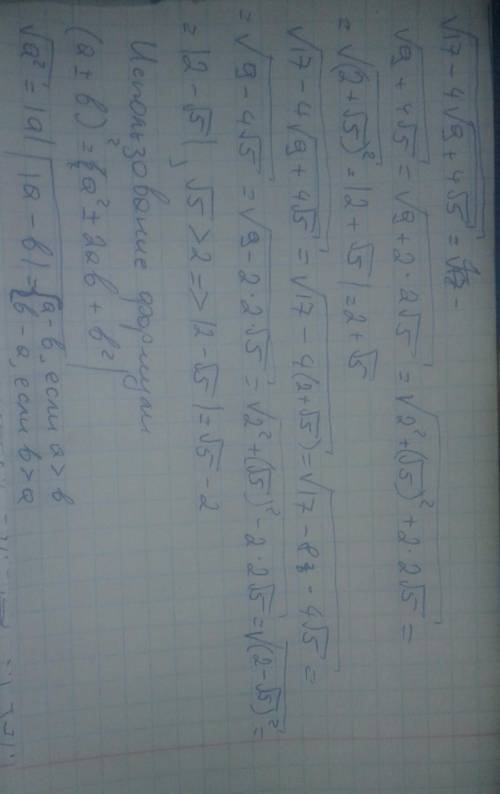 √(17 - 4√(9 + 4√5)) =
√(9 + 4√5) = √(9 + 2·2√5) = √(2² + (√5)² + 2·2√5) =
= √((2 + √5)²) = |2 + √5| = 2 + √5
√(17 - 4√(9 + 4√5)) = √(17 - 4(2 + √5)) = √(17 - 8 - 4√5) =
= √(9 - 4√5) = √(9 - 2·2√5) = √(2² + (√5)² - 2·2√5) = √((2 - √5)²) =
= |2 - √5|, √5 > 2 => |2 - √5| = √5 - 2
Использование формул
(a ± b)² = a² ± 2ab + b²
√a² = |a| |a - b| = { a - b, если a > b
b - a, если b > a